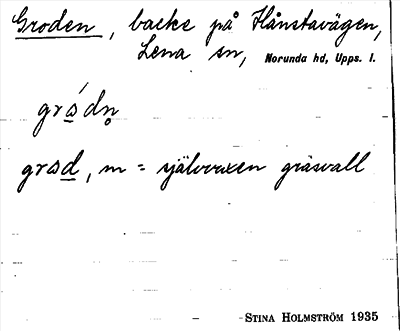 Groden, backe på Hånstavägen,
Lena sn, Norunda hd, Upps. l.
grɷ́dn̥
grɷd, m = självvuxen gräsvall
STINA HOLMSTRÖM 1935